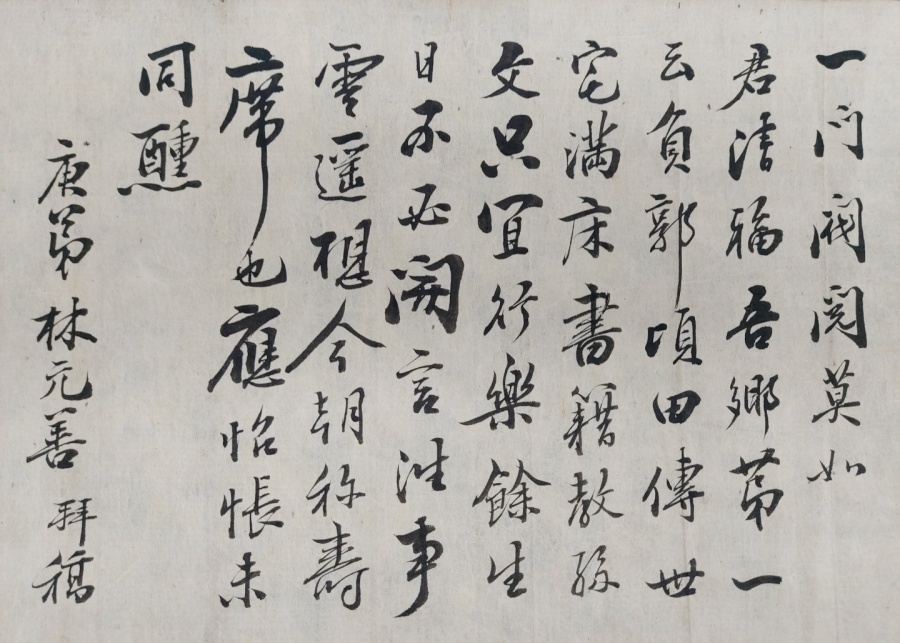 一門閥閱莫如
君清福吾鄉第一
云負郭頃田傳世
宅滿床書籍教孫
文只宜行樂餘生
日不必開言往事
雲遥想今朝称壽
席也應怊悵未
同醺
庚弟林元善拜稿